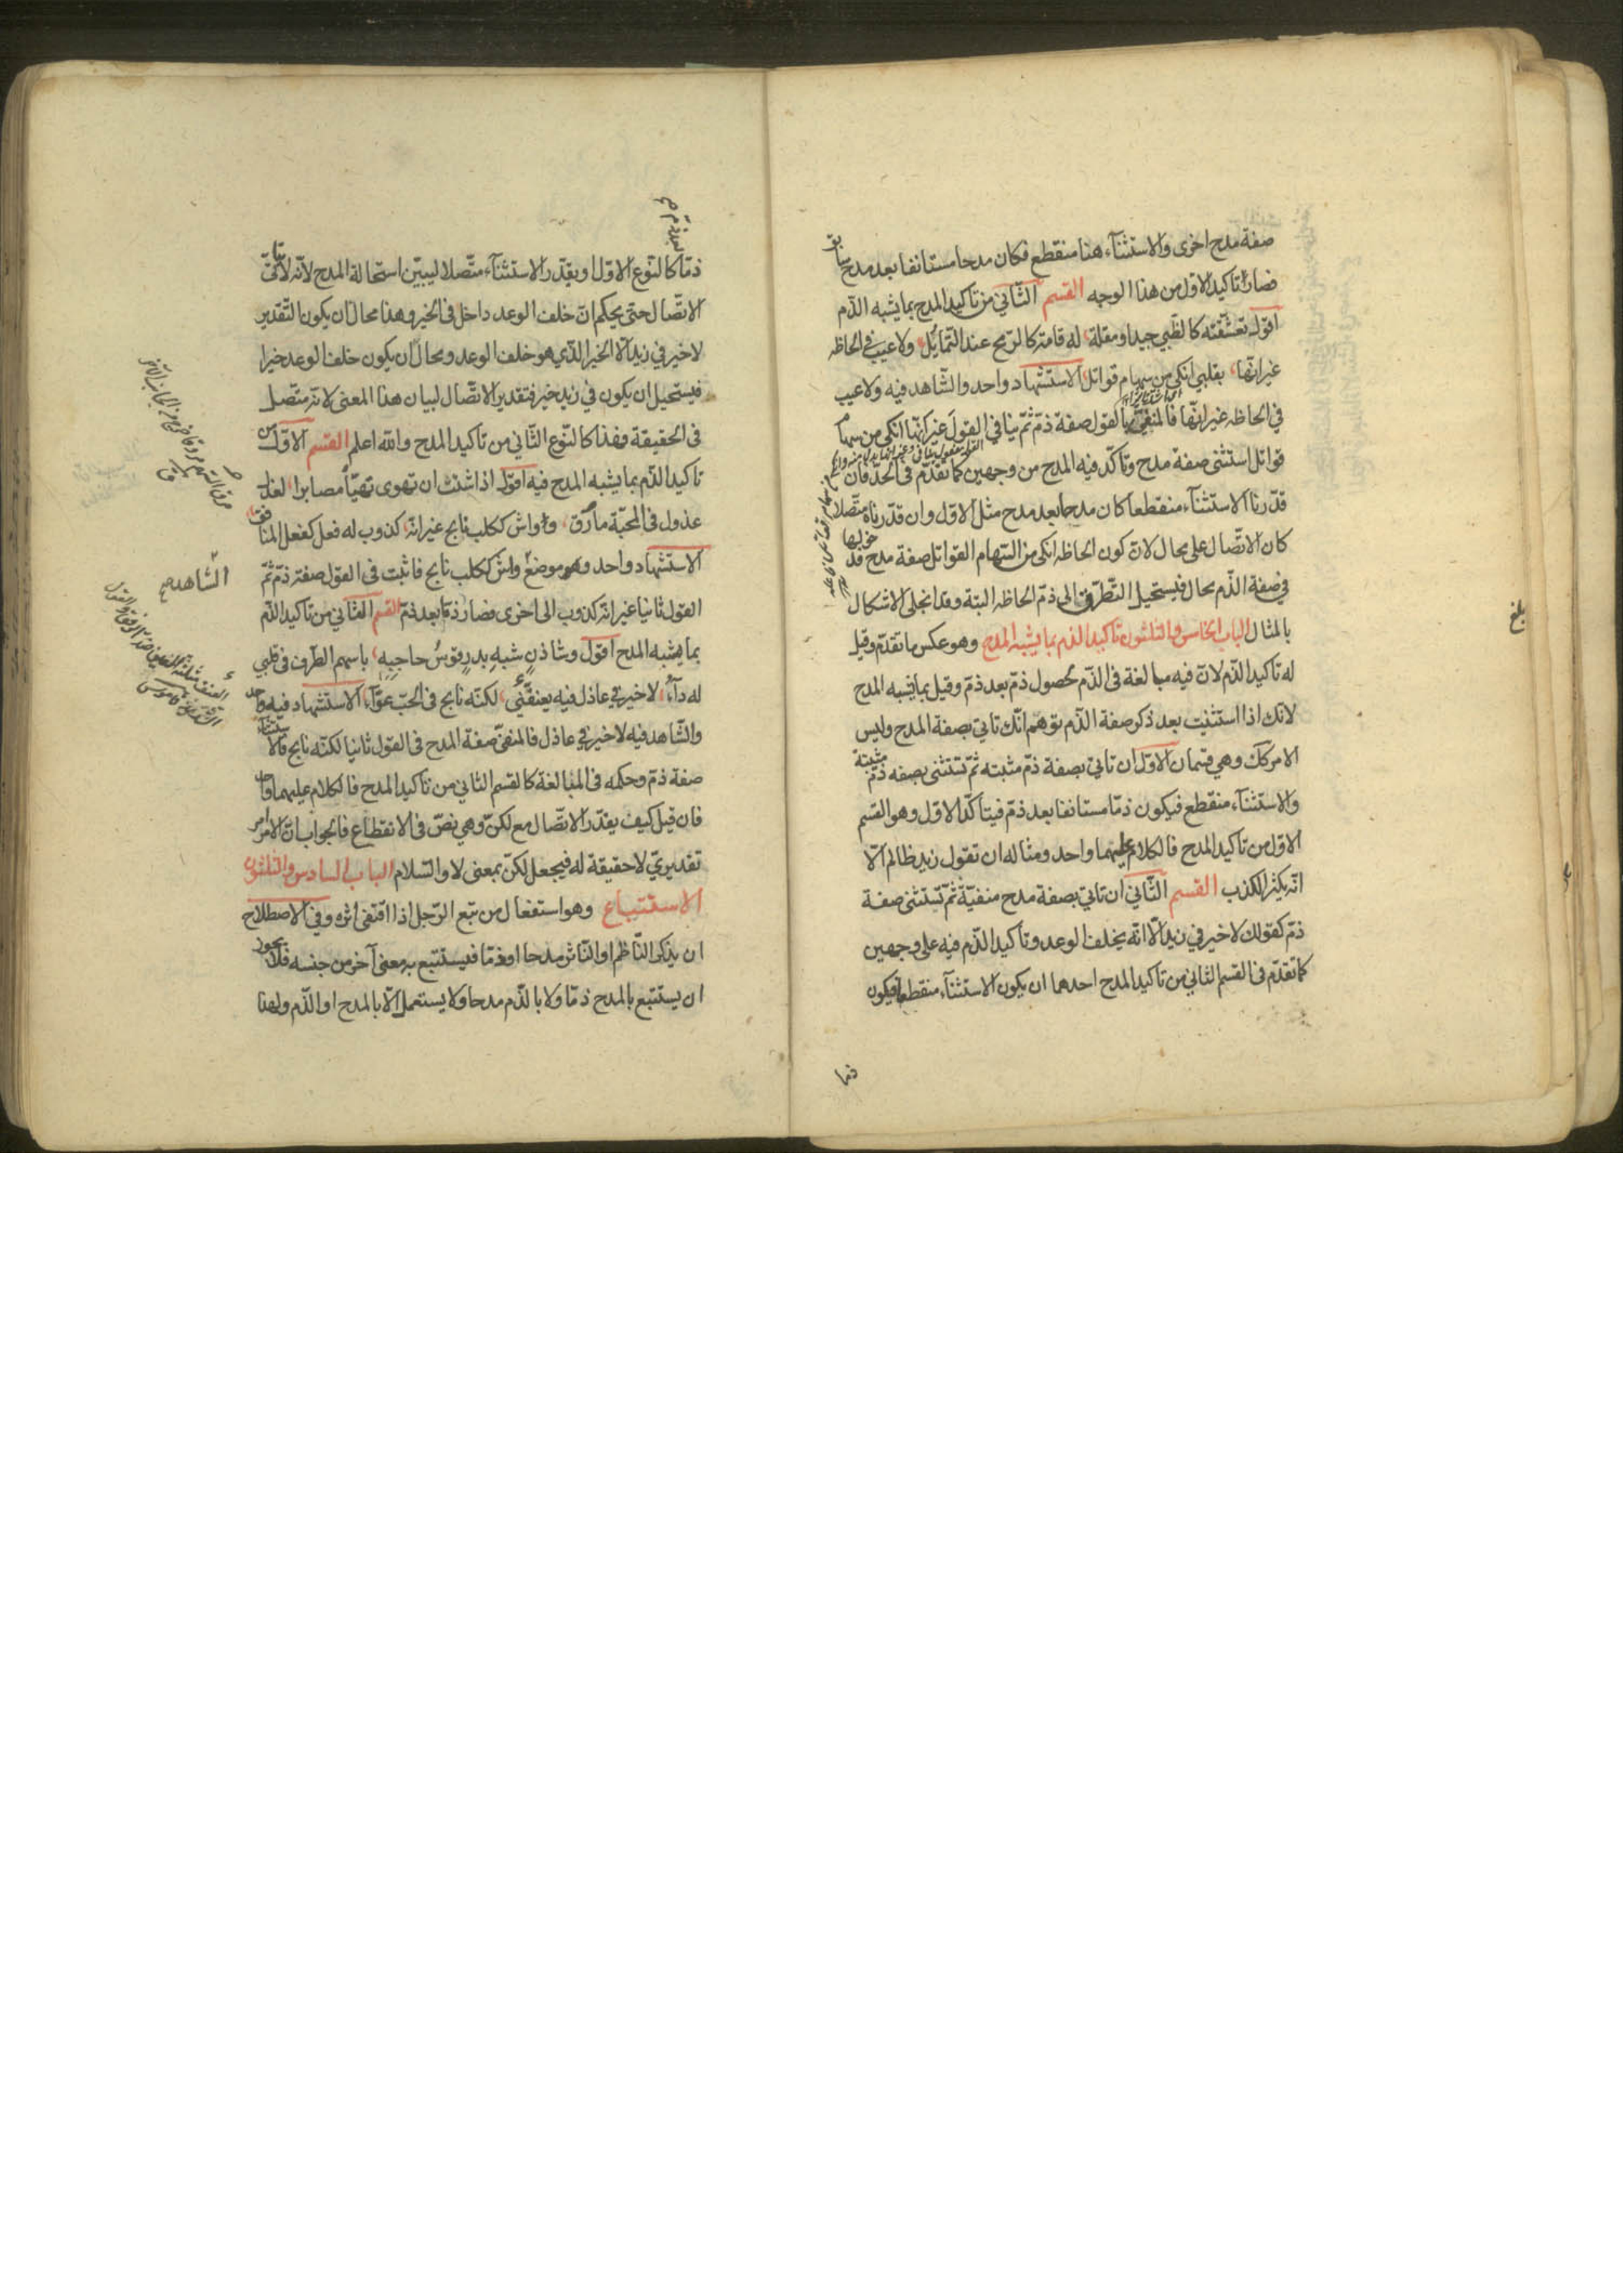 صفة مدح اخرى والاستثنآء هنا منقطع فكان مدحا مستانفا بعد مدح سابق
فصار تاكيد الاول من هذا الوجه القسم الثّاني من تاكيد المدح بما يشبه الذّم
اقول تعشّقته كالظّبي جيدا ومقلة له قامة كالرّمح عند التّمايُل ولا عيب في الحاظه
غير انّها بقلبي انكى من سهام قواتل الاستشهاد واحد والشّاهد فيه ولا عيب
في الحاظه غير انّها فالمنفيّ بالقول صفة ذمّ ثمّ ينافي القول غير انّها انكى من سهام
قواتل استثنى صفة مدح وتاكّد فيه المدح من وجهين كما تقدّم في الحدّ فان
قدّرنا الاستثنآء منقطعا كان مدحا بعد مدح مثل الاوّل وان قدّرناه متّصلا
كان الاتّصال على محال لانّ كون الحاظه انكى من السّهام القواتل صفة مدح فدخولها
في صفة الذّم محال فيستحيل التّطرّق الى ذمّ الحاظه البتة وقد انجلى الاشكال
بالمثال الباب الخامس والثلثون تاكيد الذم بما يشبه المدح وهو عكس ما تقدّم وقيل
له تاكيد الذّم لانّ فيه مبالغة في الذّم لحصول ذمّ بعد ذمّ وقيل بما يشبه المدح
لانك اذا استثنيت بعد ذكر صفة الذّم توهم انّك تاتي بصفة المدح وليس
الامر كك وهي قسمان الاوّل ان تاتي بصفة ذمّ مثبته ثمّ تستثنى بصفه ذمّ مثبتة
والاستثنآء منقطع فيكون ذمّا مستانفا بعد ذمّ فيتاكّد الاوّل وهو القسم
الاوّل من تاكيد المدح فالكلام عليهما واحد ومثاله ان تقول زيد ظالم الّا
انّه يكثر الكذب القسم الثّاني ان تاتي بصفة مدح منفيّة ثمّ تستثنى صفة
ذمّ كقولك لا خير في زيد الّا انّه يخلف الوعد وتاكيد الذّم فيه على وجهين
كما تقدّم في القسم الثاني من تاكيد المدح احدهما ان يكون الاستثنآء منقطعا فيكون
ذما
بلغ
ذمّا كالنّوع الاوّل او يقدّر الاستثنآء متّصلا ليبيّن استحالة المدح لانّه لا يتاتّى
الاتّصال حتى يحكم انّ خلف الوعد داخل في الخير وهذا محال ان يكون التّقدير
لا خير في زيد الّا الخير الّذي هو خلف الوعد ومحال ان يكون خلف الوعد خيرا
فيستحيل ان يكون في زيد خير فتقدير الاتّصال لبيان هذا المعنى لا انه متّصل
في الحقيقة وهذا كالنّوع الثّاني من تاكيد المدح والله اعلم القسم الاوّل من
تاكيد الذّم بما يشبه المدح فيه اقول اذا شئت ان تهوى تهيّأ مصابرا لعذل
عذول في المحبّة مارق وواش ككلب نابح غير انّه كذوب له فعل كفعل المنافق
الاستشهاد واحد وهو موضع واش ككلب نابح فاثبت في القول صفة ذمّ ثمّ
القول ثانيا غير انّه كذوب الى اخرى فصار ذمّا بعد ذمّ القسم الثّاني من تاكيد الذّم
بما يشبه المدح اقول وشاذنٍ شبهِ بدرٍ قوسُ حاجبِهِ باسهم الطّرف في قلبي
له دآء لا خير في عاذل فيه يعنفّني لكنّه نابح في الحبّ عوّآء الاستشهاد فيه واحد
والشّاهد فيه لا خير في عاذل فالمنفيّ صفة المدح في القول ثانيا لكنّه نابح فالاستثنآء
صفة ذمّ وحكمه في المبالغة كالقسم الثاني من تاكيد المدح فالكلام عليهما واحد
فان قيل كيف يقدّر الاتّصال مع لكنّ وهي نصّ في الانقطاع فالجواب انّ الامر امر
تقديريّ لا حقيقة له فيجعل لكنّ بمعنى لا والسّلام الباب السادس والثلثون
الاستتباع وهو استفعال من تبع الرّجل اذا اقتفى اثره وفي الاصطلاح
ان يذكر النّاظم او النّاثر مدحا او ذمّا فيستتبع به معنى آخر من جنسه فلا يجوز
ان يستتبع بالمدح ذمّا ولا بالذّم مدحا ولا يستعمل الّا بالمدح او الذّم ولهذا
الشّاهد صح